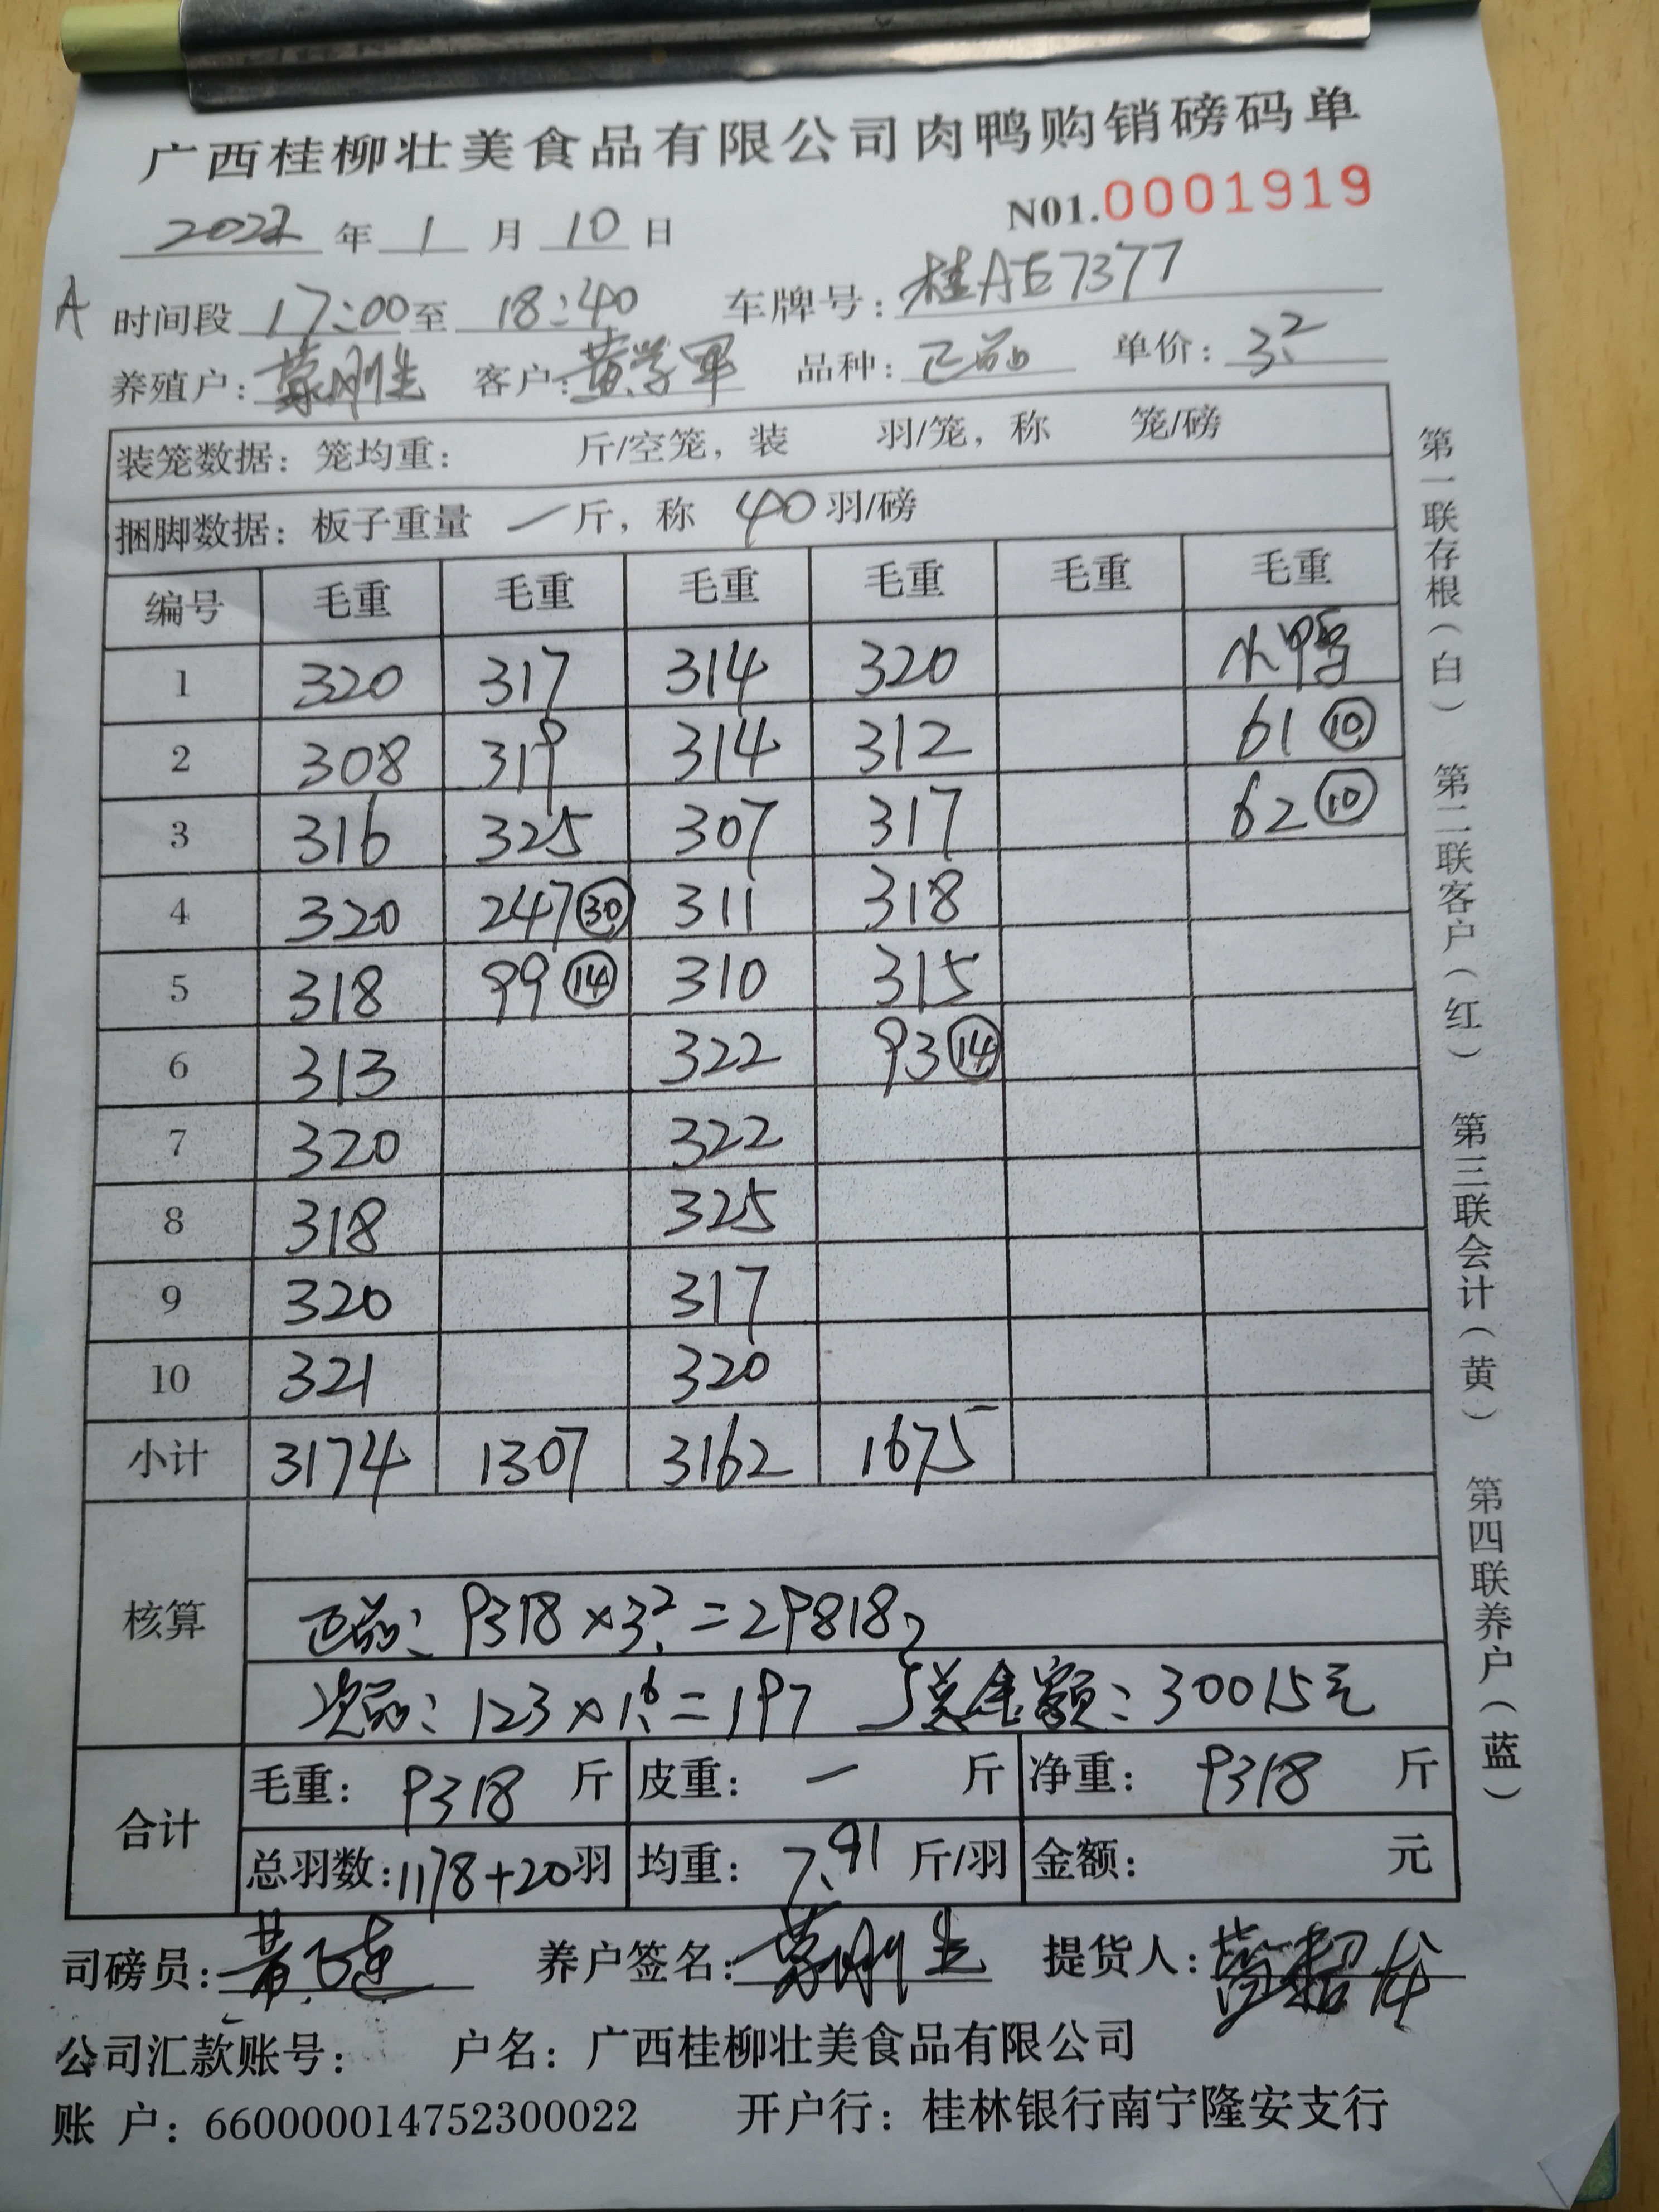 广西桂柳壮美食品有限公司肉鸭购销磅码单
N01.0001919
2022 年 1 月 10 日
A 时间段 17:00 至 18:40 车牌号: 桂AE7377
养殖户: 蒙刚生 客户: 黄学军 品种: 正品 单价: 3.2
装笼数据: 笼均重: 斤/空笼, 装 羽/笼, 称 笼/磅
捆脚数据: 板子重量 一 斤, 称 40 羽/磅
编号 毛重 毛重 毛重 毛重 毛重 毛重
1 320 317 314 320 小鸭
2 308 319 314 312 61 ⑩
3 316 325 307 317 62 ⑩
4 320 247 ㉚ 311 318
5 318 99 ⑭ 310 315
6 313 322 93 ⑭
7 320 322
8 318 325
9 320 317
10 321 320
小计 3174 1307 3162 1675
核算
正品: 9318×3.2=29818
次品: 123×1.6=197 总金额: 30015元
合计
毛重: 9318 斤 皮重: 一 斤 净重: 9318 斤
总羽数: 1178+20 羽 均重: 7.91 斤/羽 金额: 元
司磅员: 养户签名: 蒙刚生 提货人:
公司汇款账号: 户名: 广西桂柳壮美食品有限公司
账 户: 660000014752300022 开户行: 桂林银行南宁隆安支行
第一联存根(白) 第二联客户(红) 第三联会计(黄) 第四联养户(蓝)